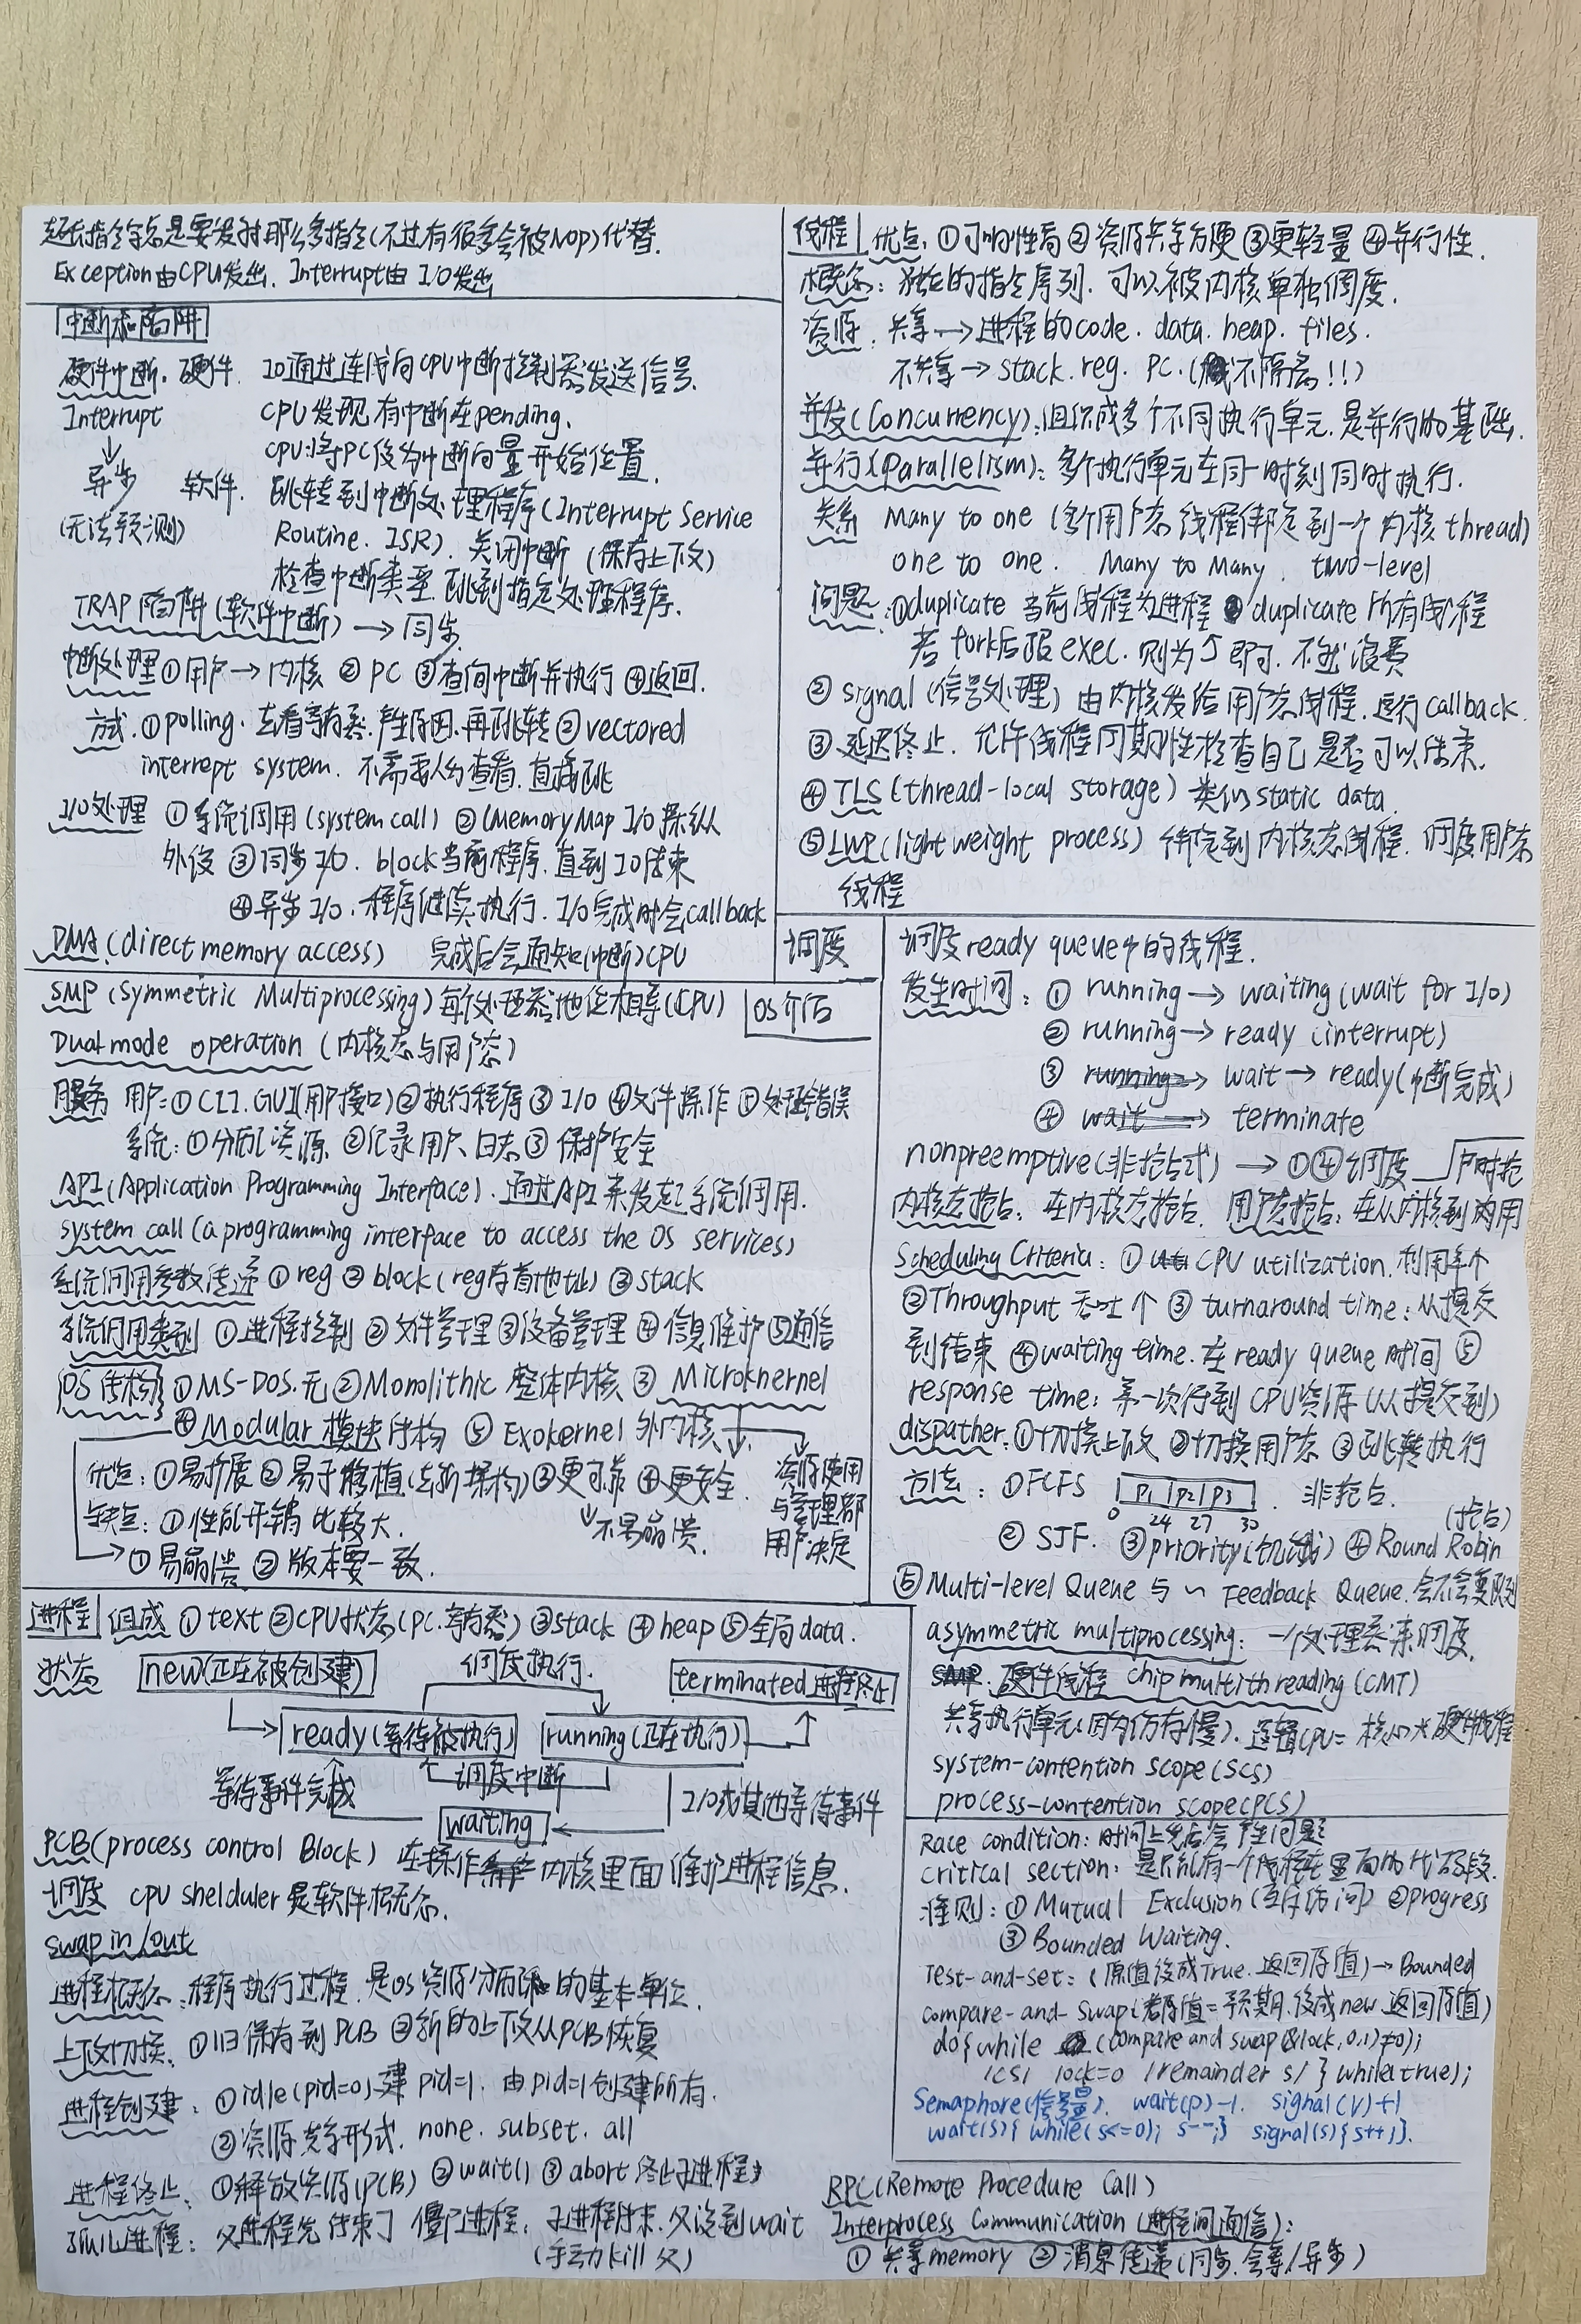 超长指令字总是要发射那么多指令(不过有很多会被Nop)代替.
Exception由CPU发出. Interrupt由 I/O发出
中断和陷阱
硬件中断. 硬件. IO通过连线向CPU中断控制器发送信号.
Interrupt CPU发现有中断在pending.
CPU:将PC设为中断向量开始位置.
异步 软件. 跳转到中断处理程序(Interrupt Service
(无法预测) Routine. ISR). 关闭中断 (保存上下文)
检查中断类型 跳到指定处理程序.
TRAP 陷阱(软件中断) → 同步
中断处理 ①用户→内核 ② PC ③查询中断并执行 ④返回.
方式. ①polling. 去看寄存器. 产生原因.再跳转 ② vectored
interrept system. 不需要人为查看. 直接跳
I/O处理 ①系统调用(system call) ②(Memory Map I/O操纵
外设 ③同步I/O. block当前程序.直到IO结束
④异步I/O. 程序继续执行. I/O完成时会callback
DMA(direct memory access) 完成后会通知(中断)CPU
SMP (Symmetric Multiprocessing) 每个处理器地位相等(CPU) OS介绍
Dual mode operation (内核态与用户态)
服务 用户:①CLI. GUI(用户接口) ②执行程序 ③ I/O ④文件操作 ⑤处理错误
系统:①分配资源 ②记录用户日志 ③ 保护安全
API(Application Programming Interface). 通过API来发起系统调用.
system call (a programming interface to access the OS services)
系统调用参数传递 ① reg ② block (reg存首地址) ③ stack
系统调用类别 ①进程控制 ② 文件管理 ③设备管理 ④ 信息维护 ⑤通信
OS结构 ①MS-DOS.无 ②Monolithic 整体内核 ③ Microknernel
④ Modular 模块结构 ⑤ Exokernel 外内核
优点: ①易扩展 ② 易于移植(去新架构) ③更可靠 ④更安全. 资源使用
缺点: ①性能开销比较大. ↓不易崩溃. 与管理都
→①易崩溃 ② 版本要一致. 用户决定
进程 组成 ① text ②CPU状态(PC.寄存器) ③stack ④ heap ⑤全局data.
状态 new(正在被创建) 调度执行. terminated 进程终止
ready(等待被执行) running(正在执行)
等待事件完成 调度中断 I/O或其他等待事件
waiting
PCB(process control Block) 在操作 内核里面维护进程信息.
调度 cpu shelduler是软件概念.
swap in/out
进程概念:程序执行过程.是OS资源分配的基本单位.
上下文切换. ①旧保存到PCB ②新的上下文从PCB恢复
进程创建: ①idle(pid=0)建 pid=1. 由pid=1创建所有.
②资源共享形式. none. subset. all
进程终止: ①释放资源(PCB) ② wait() ③ abort 终止子进程
孤儿进程: 父进程先结束了 僵尸进程: 子进程结束.父没到wait
(手动kill父)
线程 优点. ①响应性高 ② 资源共享方便 ③更轻量 ④并行性.
概念: 独立的指令序列. 可以被内核单独调度.
资源. 共享→进程的code. data. heap. files.
不共享→ stack. reg. PC.( 不隔离!!)
并发(Concurrency):组织成多个不同执行单元.是并行的基础.
并行(parallelism): 多个执行单元在同一时刻同时执行.
关系 Many to one (多个用户态线程绑定到一个内核thread)
one to one. Many to Many. two-level
问题:①duplicate 当前线程为进程 ② duplicate 所有线程
若fork后跟exec. 则为①即可. 不然浪费
② signal (信号处理) 由内核发给用户态线程. 运行callback.
③ 延迟终止. 允许线程周期性检查自己是否可以结束.
④ TLS(thread-local storage) 类似static data
⑤ LWP(light weight process) 绑定到内核态线程. 调度用户态
线程
调度 调度ready queue中的线程.
发生时间: ① running→ waiting (wait for I/O)
② running→ ready (interrupt)
③ running→ wait→ ready(中断完成)
④ wait→ terminate
nonpreemptive(非抢占式) → ①④调度 户时抢
内核态抢占: 在内核态抢占. 用户态抢占: 在从内核到内用
Scheduling Criteria: ① CPU utilization. 利用率↑
②Throughput 吞吐↑ ③ turnaround time: 从提交
到结束 ④waiting time. 在ready queue时间 ⑤
response time: 第一次得到CPU资源 (从提交到)
dispather: ①切换上下文 ②切换用户态 ③跳转执行
方法: ①FCFS P1 P2 P3 . 非抢占.
0 24 27 30 (抢占)
② SJF. ③priority(饥饿) ④ Round Robin
⑤Multi-level Queue 与 ~ Feedback Queue.会不会变队列
asymmetric multiprocessing: 一个处理器来调度.
SMP. 硬件线程 chip multithreading (CMT)
共享执行单元(因为访存慢). 逻辑CPU= 核心×硬件线程
system-contention scope (SCS)
process-contention scope(PCS)
Race condition: 时间上先后会产生问题
critical section: 是只能有一个线程在里面的代码段.
准则: ① Mutual Exclusion (互斥访问) ②progress
③ Bounded Waiting.
Test-and-set: (原值设成True. 返回原值) → Bounded
compare-and-swap(若原值=预期.设成new 返回原值)
do{while (compare and swap(&lock,0,1)≠0);
/CS/ lock=0 /remainder s/ } while(true);
Semaphore(信号量). wait(p)-1. signal(V)+1
wait(s){ while(s<=0); s--;} signal(s){s++;}.
RPC(Remote Procedure Call)
Interprocess Communication (进程间通信):
① 共享memory ② 消息传递(同步.会等/异步)